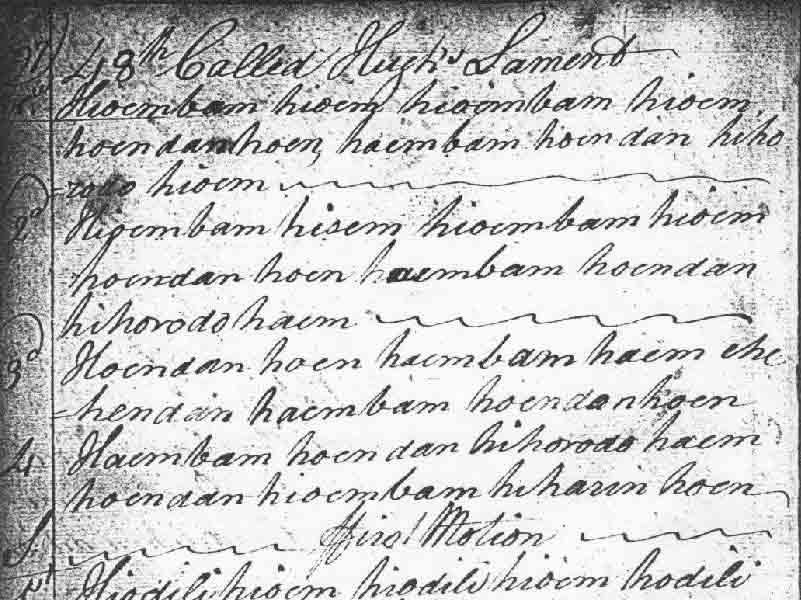 48th Called Hugh's Lament
Hioembam hioem, hioembam hioem,
hoendanhoen, haembam hoendan hiho
rodo hioem
2d Hioembam hioem hioembam hioem
hoendan hoen haembam hoendan
hihorodo haem
3d Hoendan hoen haembam haem che
hendan haembam hoendanhoen
4 Haembam hoendan hihorodo haem
hoendan hioembam hiharin hoen
First Motion
1st Hiodili hioem hiodili hioem hodili